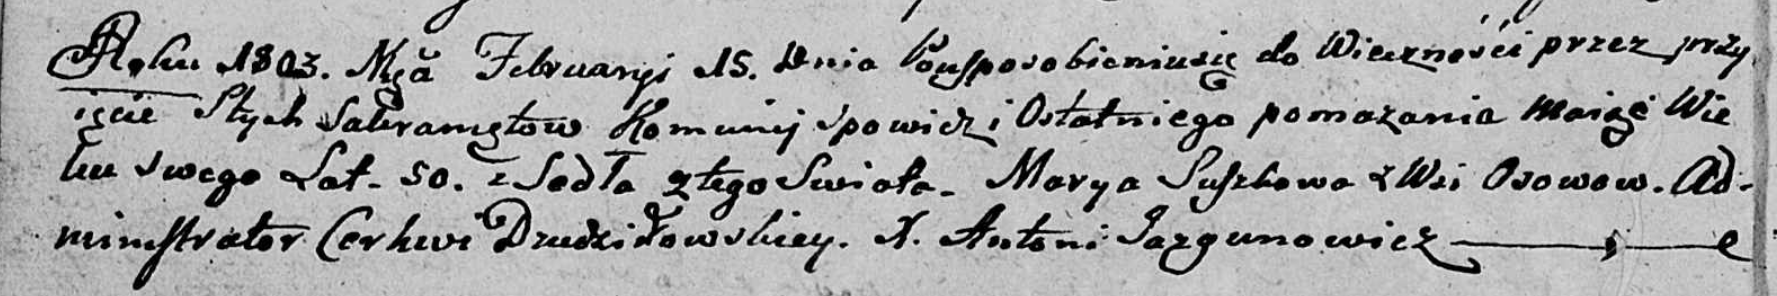 Roku 1803. Mca Februaryi 15. Dnia Pousposobieniusię do Wieczności przez przy
ięcie Stych Sakramętow Komunij Spowiedz i Ostatniego pomazania maiąc Wie
ku swego Lat. 50. zSedła ztego Swiata. Marya Suszkowa z Wsi Osowow. Ad-
ministrator Cerkwi Dzudziłowskiey. X. Antoni Jazgunowicz